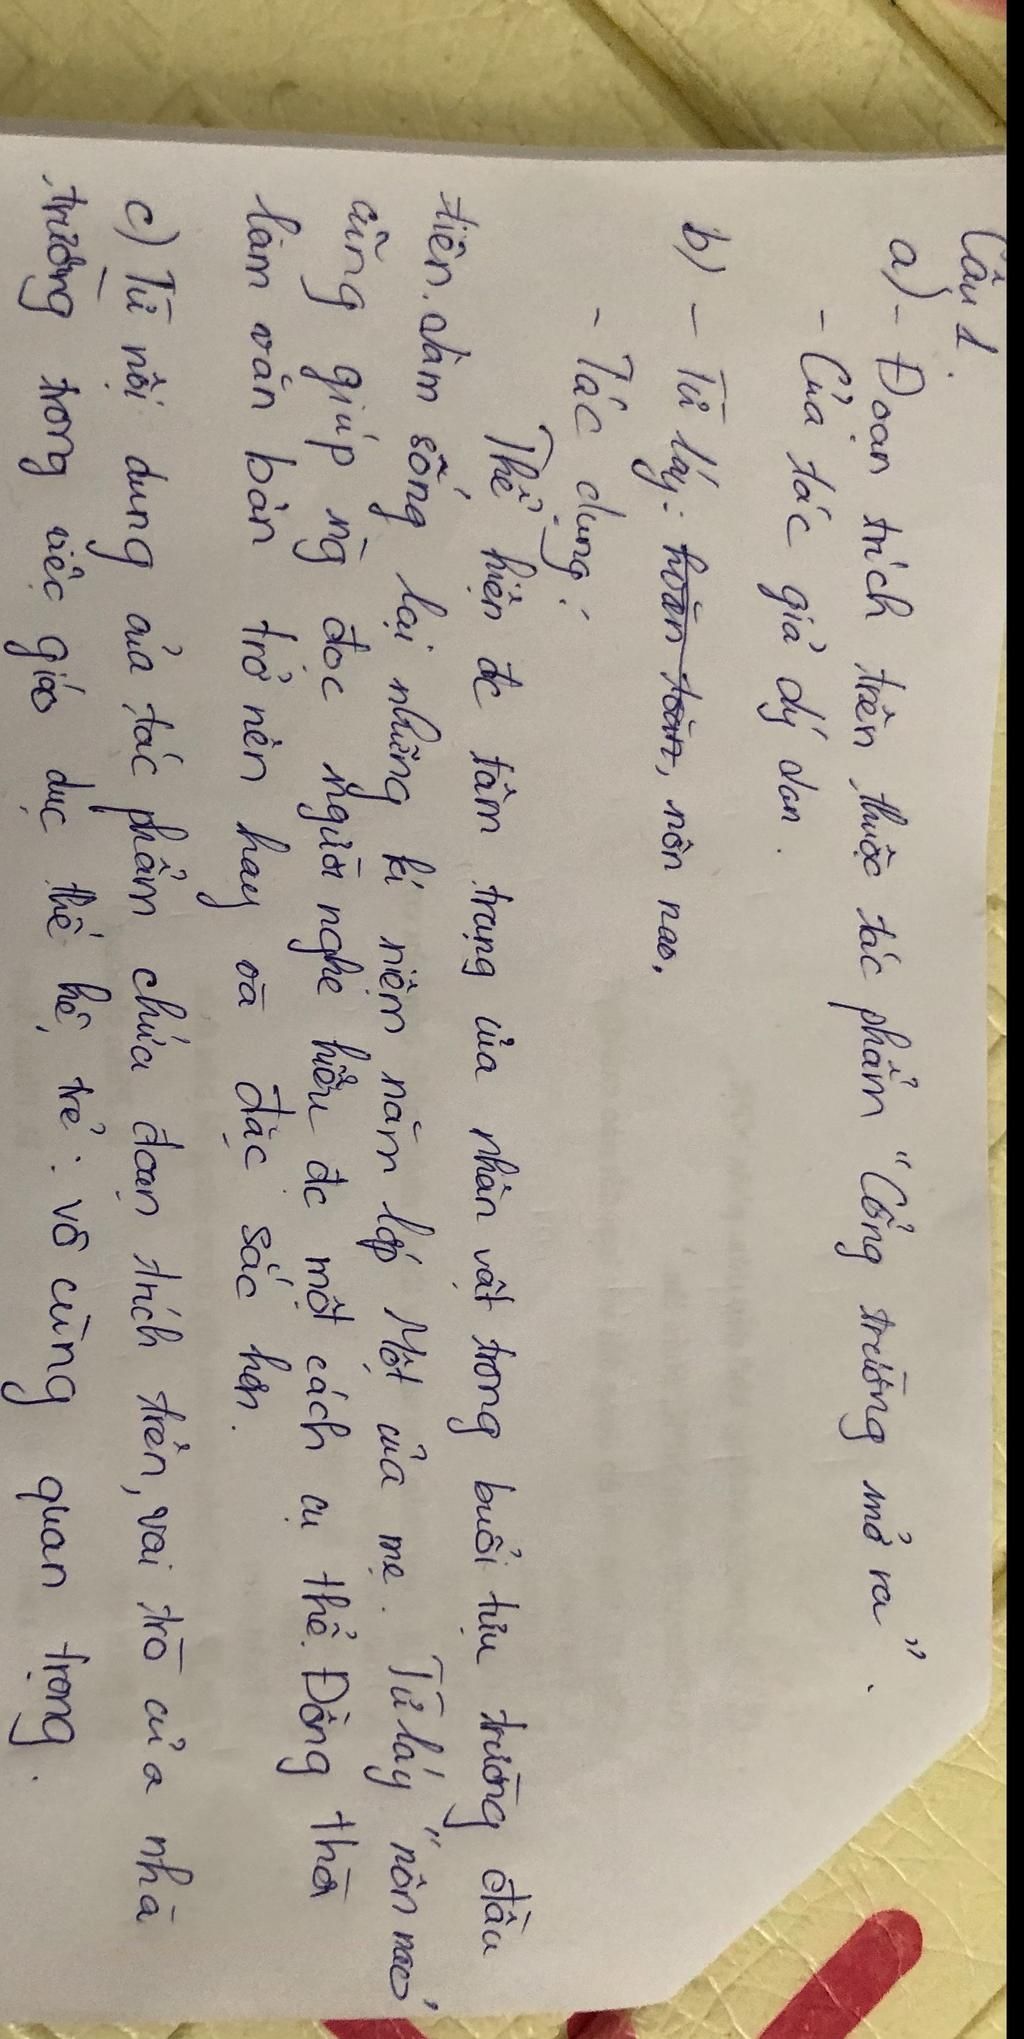 Câu 1.
a) - Đoạn trích trên thuộc tác phẩm "Cổng trường mở ra".
- Của tác giả Lý Lan.
b) - Từ láy: hoàn toàn, nôn nao.
- Tác dụng:
Thể hiện đc tâm trạng của nhân vật trong buổi tựu trường đầu
tiên. Làm sống lại những kỉ niệm năm lớp Một của mẹ. Từ láy "nôn nao"
cũng giúp ng đọc người nghe hiểu đc một cách cụ thể. Đồng thời
làm văn bản trở nên hay và đặc sắc hơn.
c) Từ nội dung của tác phẩm chứa đoạn trích trên, vai trò của nhà
trường trong việc giáo dục thế hệ trẻ: vô cùng quan trọng.